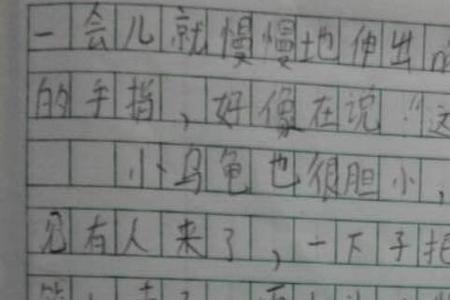 一会儿就慢慢地伸出
的手指，好像在说：“这
小乌龟也很胆小，
见有人来了，一下子把